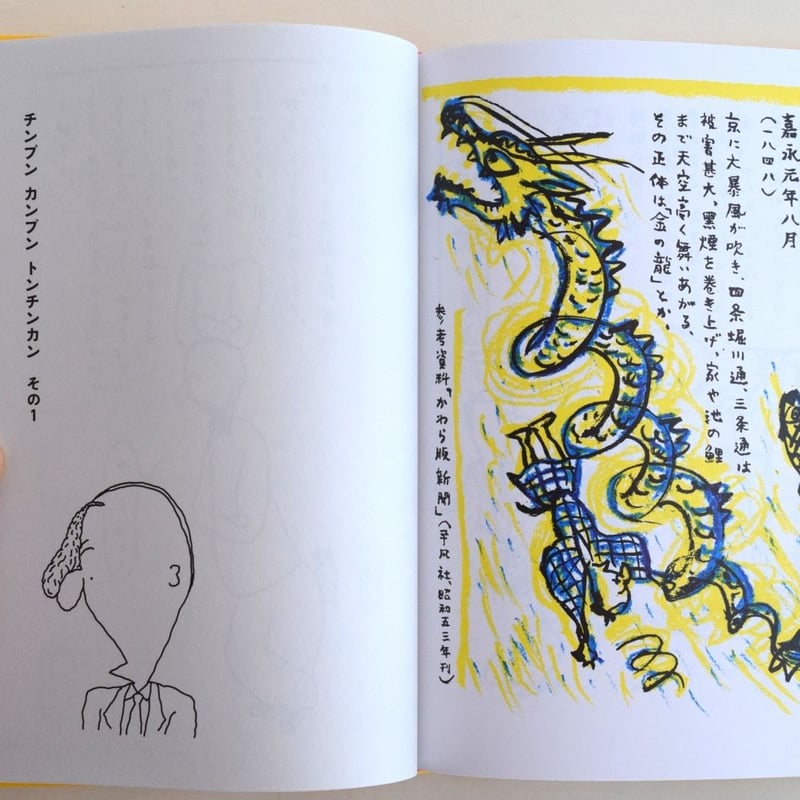 嘉永元年八月
(一八四八)
京に大暴風が吹き、四条堀川通、三条通は
被害甚大。黒煙を巻き上げ、家や池の鯉
まで天空高く舞いあがる、
その正体は「金の龍」とか。
参考資料『かわら版新聞』(平凡社、昭和五三年刊)
チンプン カンプン トンチンカン その1